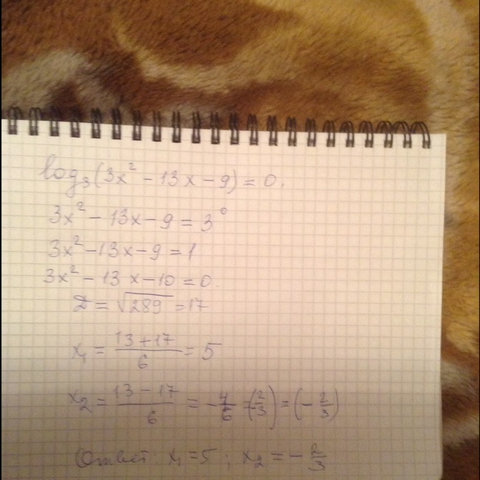 log₃(3x² - 13x - 9) = 0.
3x² - 13x - 9 = 3⁰
3x² - 13x - 9 = 1
3x² - 13x - 10 = 0
D = √289 = 17
x₁ = (13 + 17)/6 = 5
x₂ = (13 - 17)/6 = -4/6 = (-2/3) = (-2/3)
Ответ: x₁ = 5; x₂ = -2/3